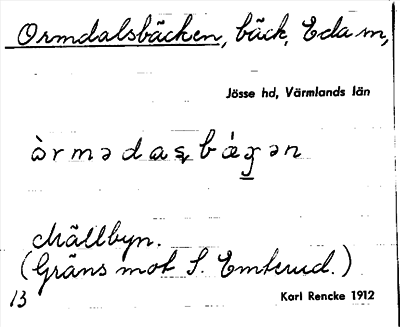 Ormdalsbäcken, bäck, Eda m,
Jösse hd, Värmlands län
ὰrmədaʂbǽɡ̱ən
Hällbyn.
(Gräns mot S. Emterud.)
13
Karl Rencke 1912